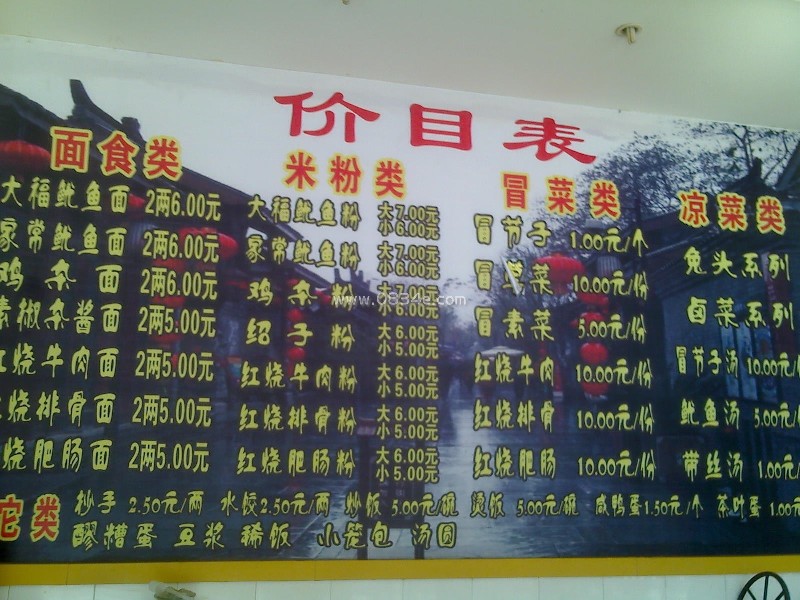 价目表
面食类
大福鱿鱼面 2两6.00元
家常鱿鱼面 2两6.00元
鸡杂面 2两6.00元
素椒杂酱面 2两5.00元
红烧牛肉面 2两5.00元
烧排骨面 2两5.00元
烧肥肠面 2两5.00元
米粉类
大福鱿鱼粉 大7.00元 小6.00元
家常鱿鱼粉 大7.00元 小6.00元
鸡杂粉 大7.00元 小6.00元
绍子粉 大6.00元 小5.00元
红烧牛肉粉 大6.00元 小5.00元
红烧排骨粉 大6.00元 小5.00元
红烧肥肠粉 大6.00元 小5.00元
冒菜类
冒节子 1.00元/个
冒荤菜 10.00元/份
冒素菜 5.00元/份
红烧牛肉 10.00元/份
红烧排骨 10.00元/份
红烧肥肠 10.00元/份
凉菜类
兔头系列
卤菜系列
冒节子汤 10.00元/
鱿鱼汤 5.00元/
带丝汤 1.00元/
类
抄手 2.50元/两 水饺2.50元/两 炒饭 5.00元/碗 烫饭 5.00元/碗 咸鸭蛋1.50元/个 茶叶蛋 1.00元
醪糟蛋 豆浆 稀饭 小笼包 汤圆
www.0834e.com